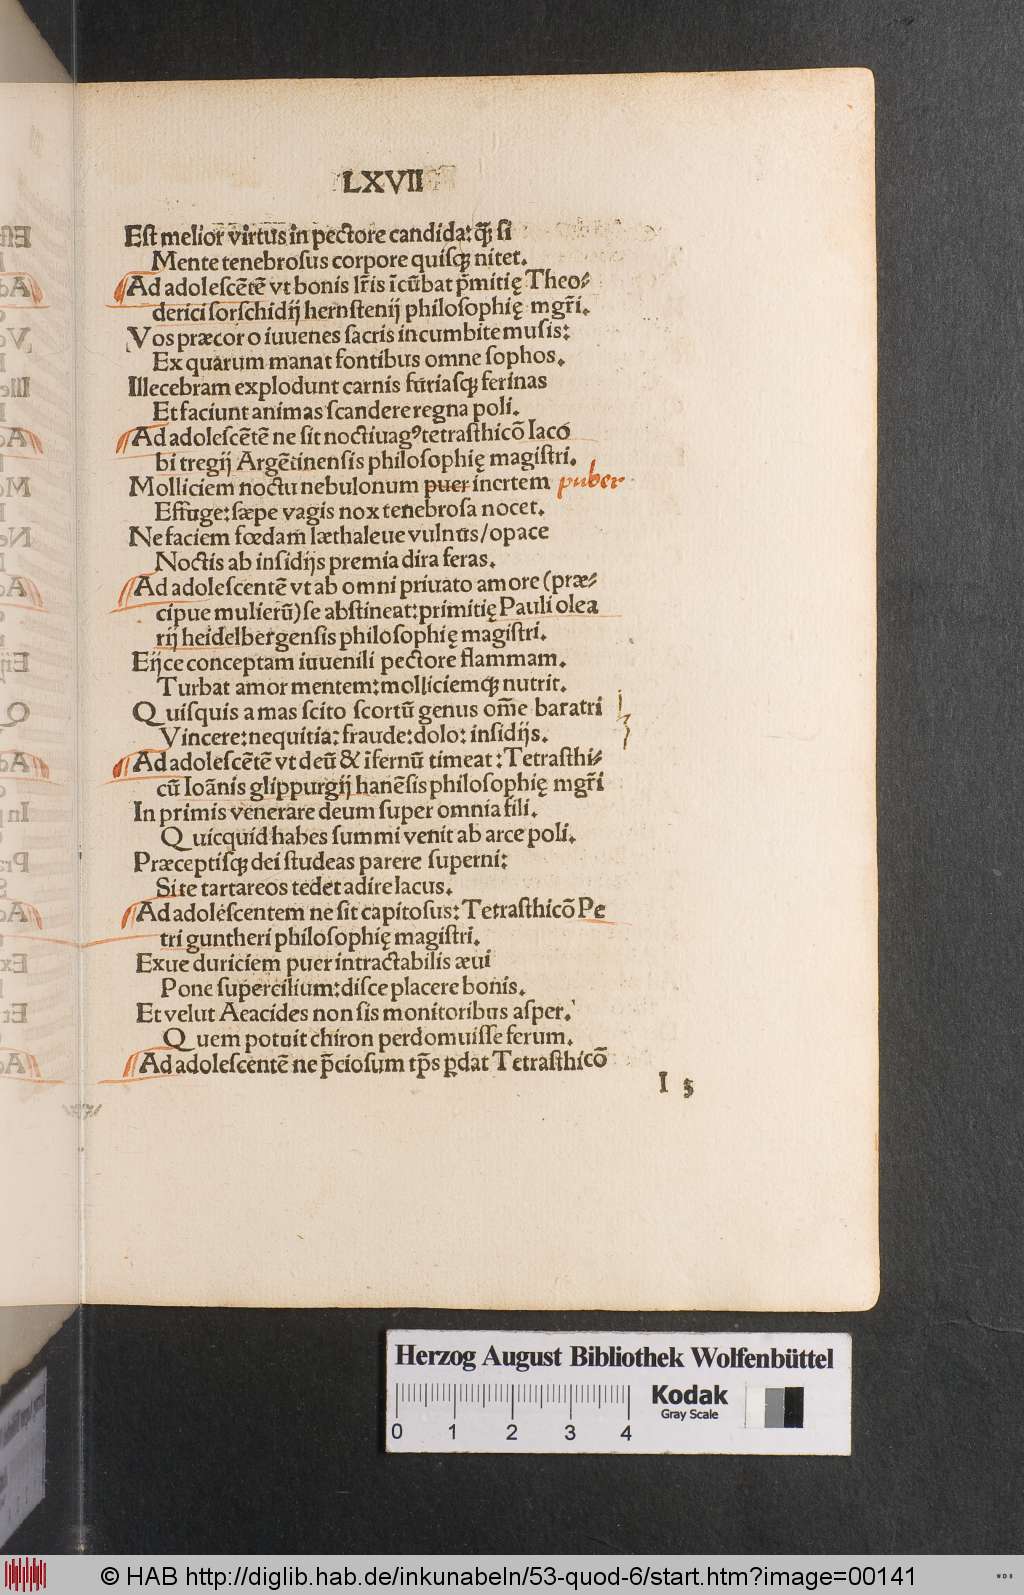 LXVII
Eſt melior virtus in pectore candida: ꝙ̃ ſi
Mente tenebroſus corpore quiſqꝫ nitet.
Ad adoleſcẽtẽ vt bonis lr̃is ĩcũbat p̃mitię Theo⸗
derici ſorſchidij hernſtenij philoſophię mgr̃i.
Vos præcor o iuuenes ſacris incumbite muſis:
Ex quarum manat fontibus omne ſophos.
Illecebram explodunt carnis furiaſqꝫ ferinas
Et faciunt animas ſcandere regna poli.
Ad adoleſcẽtẽ ne ſit noctiuagꝰ tetraſthicõ Iaco
bi tregij Argẽtinenſis philoſophię magiſtri.
Molliciem noctu nebulonum puer inertem puber
Effuge: ſæpe vagis nox tenebroſa nocet.
Ne faciem fœdam læthaleue vulnus/opace
Noctis ab inſidijs premia dira feras.
Ad adoleſcentẽ vt ab omni priuato amore (præ⸗
cipue mulierũ) ſe abſtineat: primitię Pauli olea
rij heidelbergenſis philoſophię magiſtri.
Eijce conceptam iuuenili pectore flammam.
Turbat amor mentem: molliciemqꝫ nutrit.
Quiſquis amas ſcito ſcortũ genus om̃e baratri
Vincere: nequitia: fraude: dolo: inſidijs.
Ad adoleſcẽtẽ vt deũ & ĩfernũ timeat: Tetraſthi⸗
cũ Ioãnis glippurgij hanẽſis philoſophię mgr̃i
In primis venerare deum ſuper omnia fili.
Quicquid habes ſummi venit ab arce poli.
Præceptiſqꝫ dei ſtudeas parere ſuperni:
Si te tartareos tedet adire lacus.
Ad adoleſcentem ne ſit capitoſus: Tetraſthicõ Pe
tri guntheri philoſophię magiſtri.
Exue duriciem puer intractabilis æui
Pone ſupercilium: diſce placere bonis.
Et velut Aeacides non ſis monitoribus aſper.
Quem potuit chiron perdomuiſſe ferum.
Ad adoleſcentẽ ne p̃cioſum tp̃s ꝑdat Tetraſthicõ
I 3
Herzog August Bibliothek Wolfenbüttel
0 1 2 3 4
Kodak
Gray Scale
© HAB http://diglib.hab.de/inkunabeln/53-quod-6/start.htm?image=00141